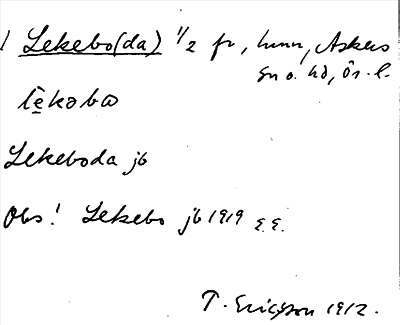 / Lekebo(da) 1/2 fr, hmn, Askers
sn o. hd, Ör. l.
lèkəbω
Lekeboda jb
Obs! Lekebo jb 1919 E.E.
T. Ericsson 1912.